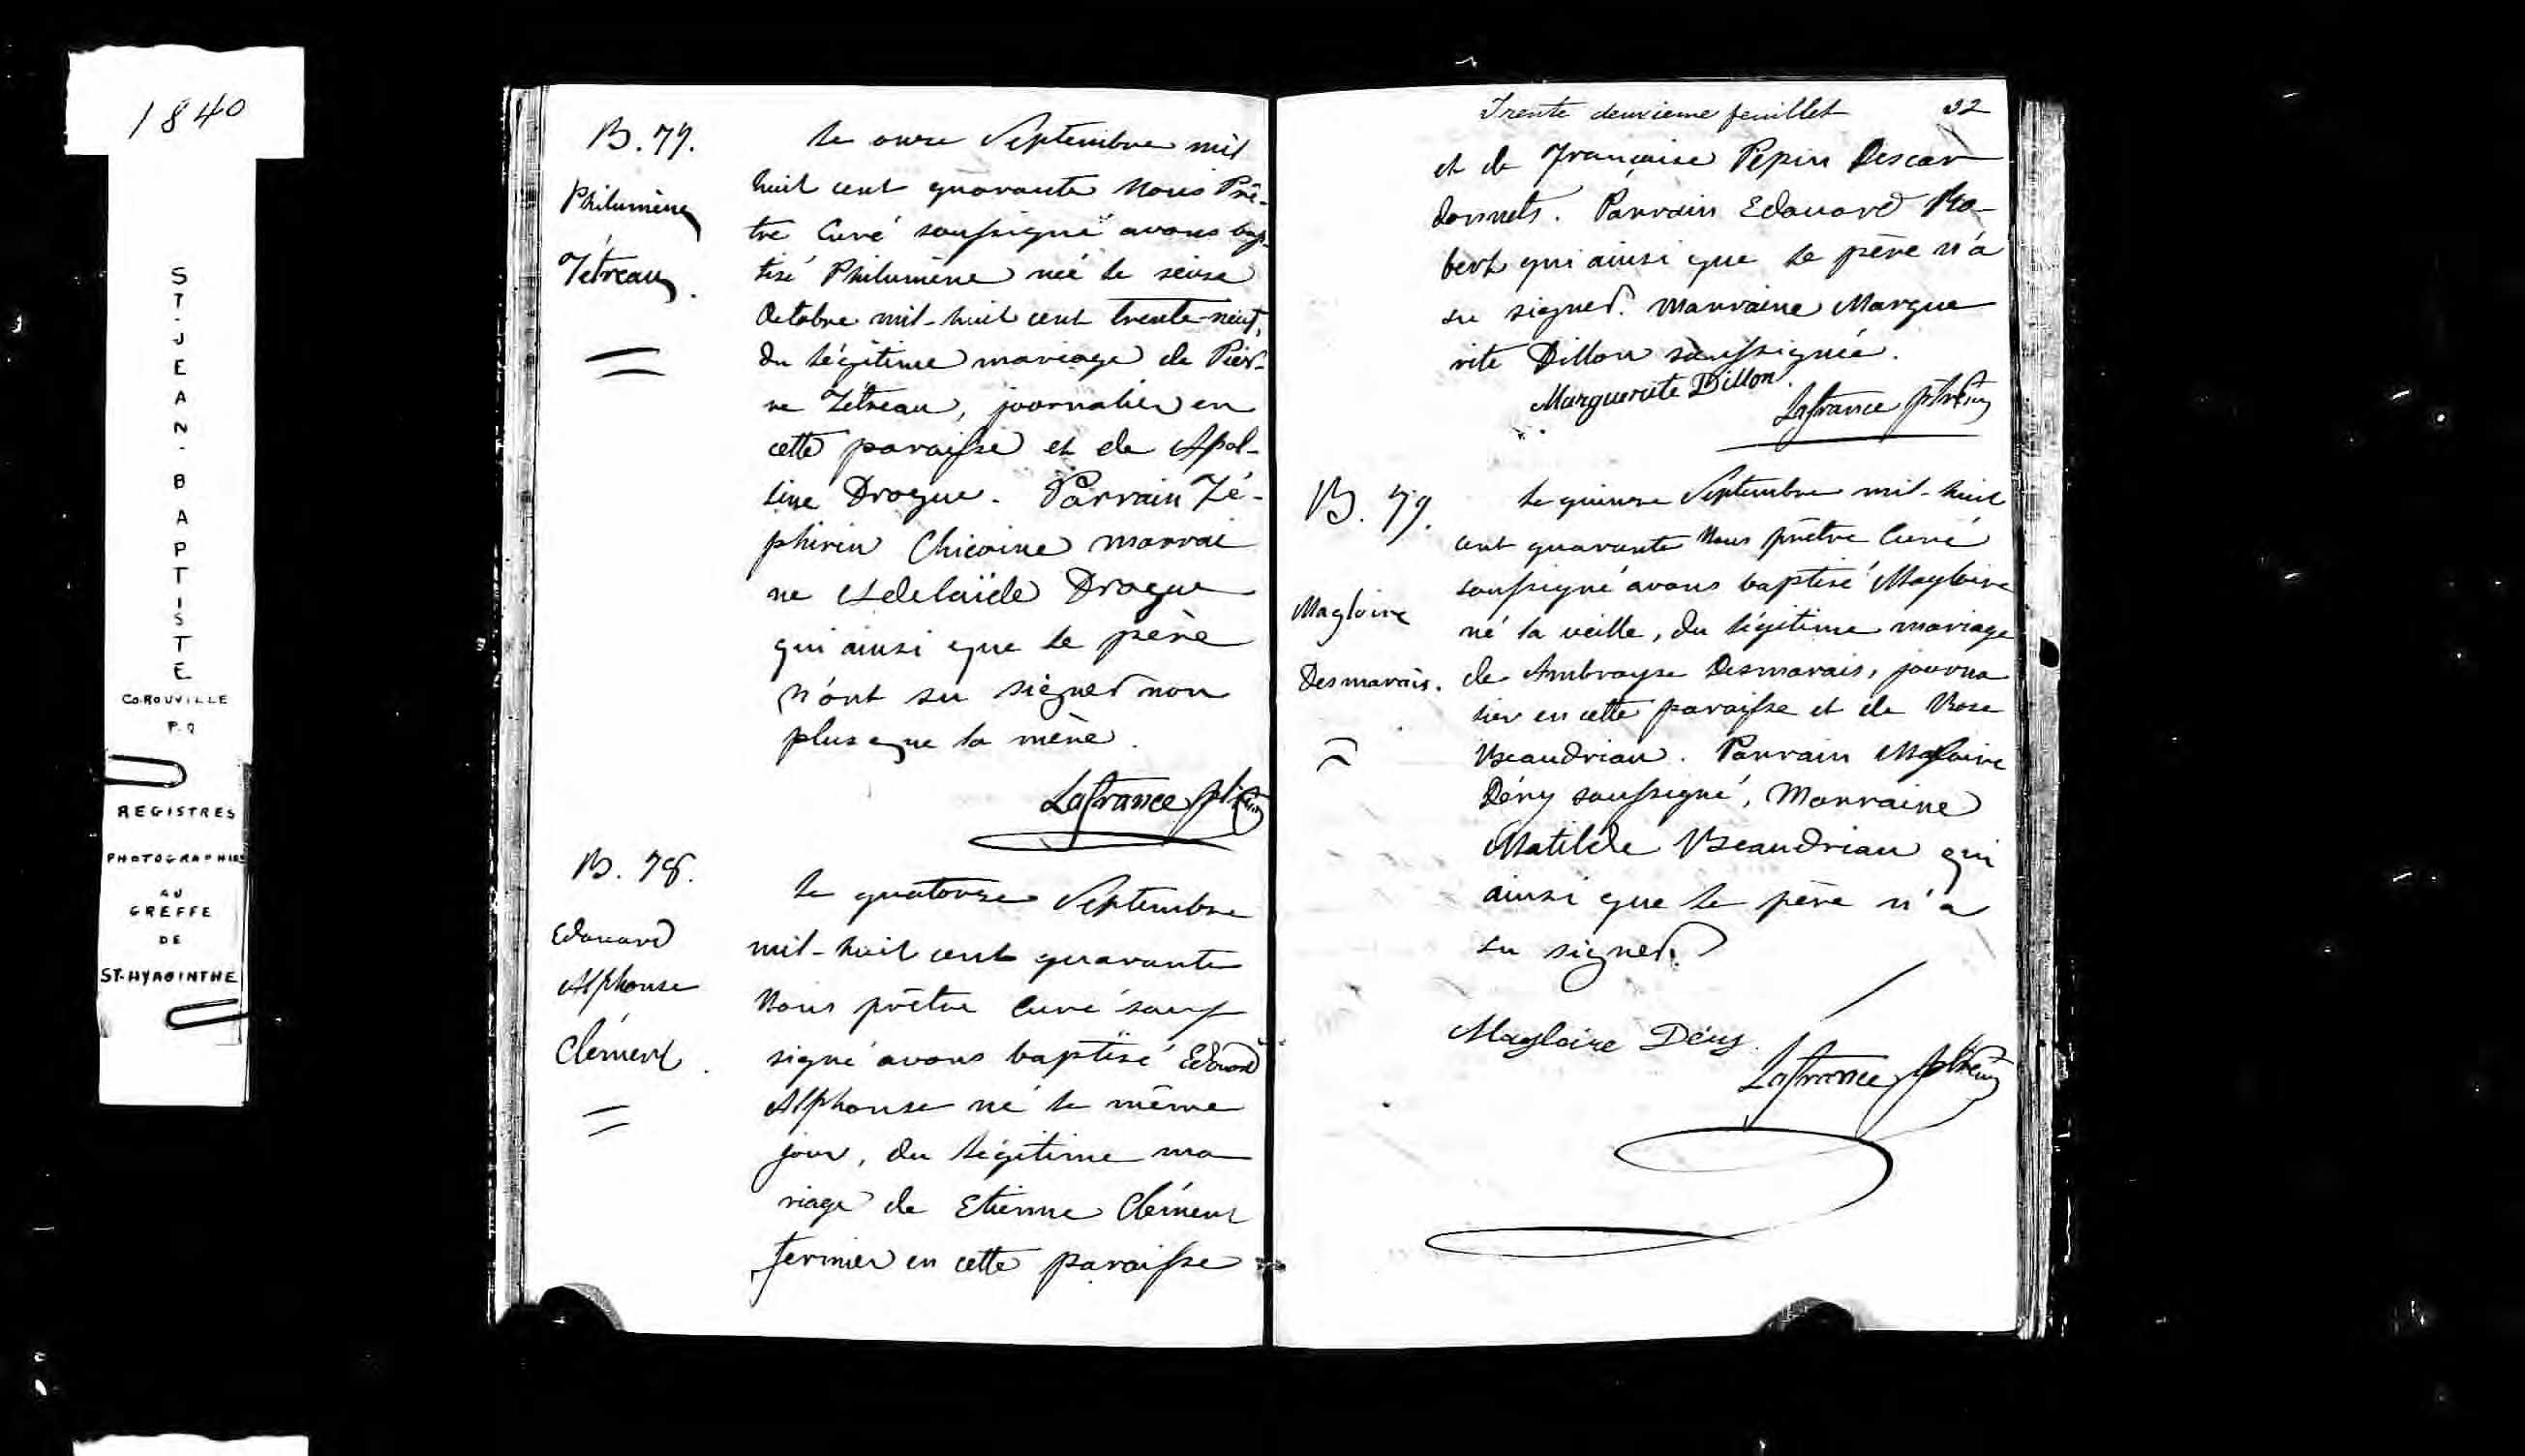 1840
ST-JEAN-BAPTISTE
CO. ROUVILLE
P.Q
REGISTRES
PHOTOGRAPHIES
AU
GREFFE
DE
ST-HYACINTHE
B. 77.
Philumène
Tétreau.
Le onze Septembre mil
huit cent quarante Nous Prê-
tre Curé soussigné avons bap-
tisé Philumène née le seize
Octobre mil-huit cent trente-neuf,
du légitime mariage de Pier-
re Tétreau, journalier en
cette paroisse et de Apol-
line Drogue. Parrain Zé-
phirin Chicoine marrai
ne Adelaïde Drogue
qui ainsi que le père
n'ont su signer non
plus que la mère.
Lafrance ptre
B. 78.
Edouard
Alphonse
Clément.
Le quatorze Septembre
mil-huit cent quarante
Nous prêtre Curé sous
signé avons baptisé Edouard
Alphonse né le même
jour, du légitime ma
riage de Etienne Clément
fermier en cette paroisse
Trente deuxieme feuillet 32
et de Françoise Pepin Descar
donnets. Parrain Edouard Ro-
bert qui ainsi que le père n'a
su signer. Marraine Margue
rite Dillon soussignée.
Marguerite Dillon.
Lafrance ptre
B. 79.
Magloire
Desmarais.
Le quinze Septembre mil-huit
cent quarante Nous prêtre Curé
soussigné avons baptisé Magloire
né la veille, du légitime mariage
de Ambroyse Desmarais, journa
lier en cette paroisse et de Rose
Beaudriau. Parrain Magloire
Dény soussigné, Marraine
Matilde Beaudriau qui
ainsi que le père n'a
su signer.
Magloire Dény
Lafrance ptre